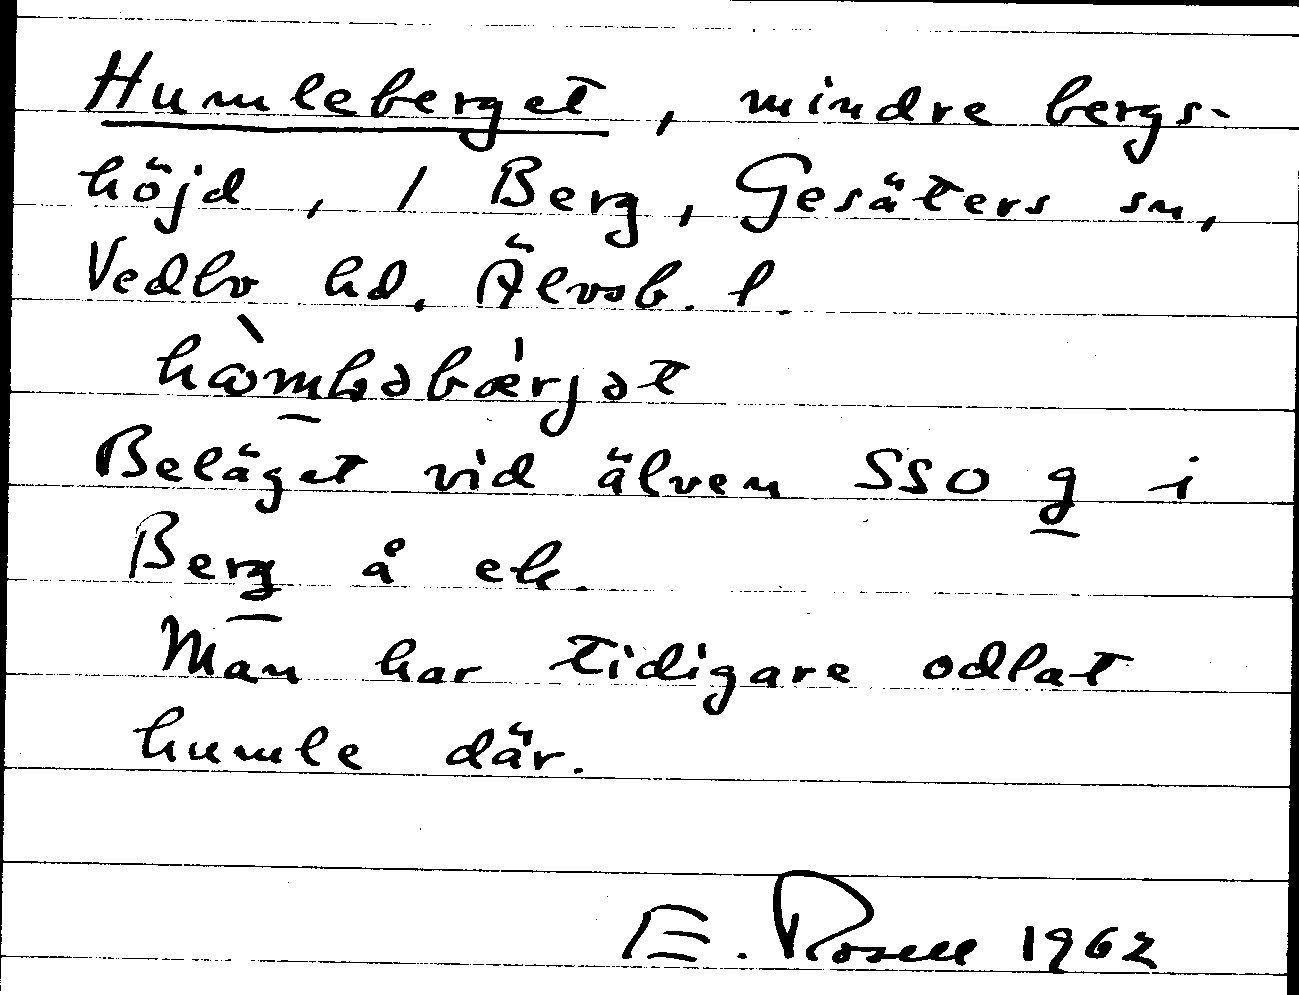 Humleberget, mindre bergs-
höjd, 1 Berg, Gesäters sn,
Vedbo hd. Älvsb. l.
Beläget vid älven SSO g i
Berg å ek.
Man har tidigare odlat
humle där.
E. Rosell 1962